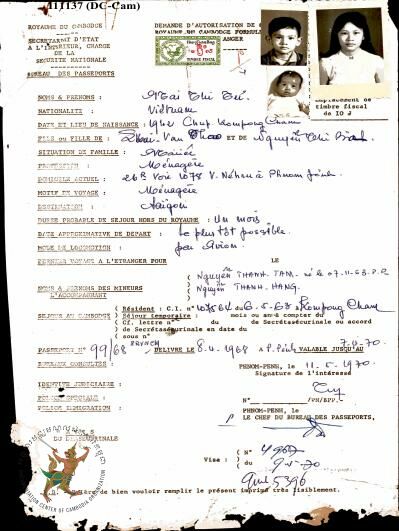 111137 (DC-Cam)
ROYAUME DU CAMBODGE
SECRETARIAT D'ETAT
A L'INTERIEUR, CHARGE
DE LA
SECURITE NATIONALE
BUREAU DES PASSEPORTS
DEMANDE D'AUTORISATION DE
ROYAUME DU CAMBODGE FORMULE
ANGER
TIMBRE FISCAL
Emplacement de
timbre fiscal
de 10 $
NOMS & PRENOMS : Mai Thi Tu.
NATIONALITE : Vietnam
DATE ET LIEU DE NAISSANCE : 1942 Chup Kompong Cham
FILS ou FILLE DE : Van Thao ET DE Nguyen Thi
SITUATION DE FAMILLE : Mariée
PROFESSION : Ménagère
DOMICILE ACTUEL : 26B Voie 1078 V. Néhru à Phnom Penh
MOTIF DE VOYAGE : Ménagère
DESTINATION : Saigon
DUREE PROBABLE DE SEJOUR HORS DU ROYAUME : Un mois
DATE APPROXIMATIVE DE DEPART : Le plus tôt possible.
MODE DE LOCOMOTION : par Avion.
DERNIER VOYAGE A L'ETRANGER POUR LE
NOMS & PRENOMS DES MINEURS
L'ACCOMPAGNANT
Nguyen THANH TAM. né le 07.11.63 P.P
Nguyen THANH HANG.
SEJOUR AU CAMBODGE
Résident : C.I. n° 107864 6.5.68 Kompong Cham
Séjour temporaire : mois ou an à compter du
Cf. lettre n° du de Secrétasécurinale ou accord
de Secrétasécurinale en date du
sous n°
PASSEPORT N° 99/68 DELIVRE LE 8.4.1968 A P.Penh VALABLE JUSQU'AU 7.4.70
BUREAUX CONSULTES :
PHNOM-PENH, le 11.5.1970.
Signature de l'intéressé
IDENTITE JUDICIAIRE
POLICE SPECIALE
POLICE IMMIGRATION
N° /PH/BPP.
PHNOM-PENH, le
P LE CHEF DU BUREAU DES PASSEPORTS,
Visa : ( N° 4967
( du 9-5-70
5396
de bien vouloir remplir le présent imprimé très lisiblement.
DOCUMENTATION CENTER OF CAMBODIA ORGANIZATION